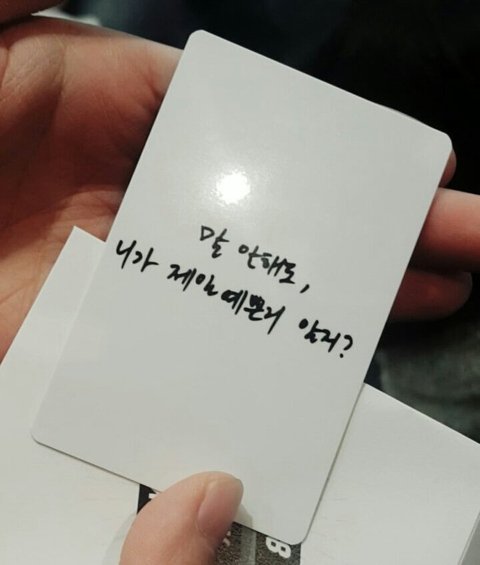 말 안해도,
니가 제일 예쁜거 알지?
8